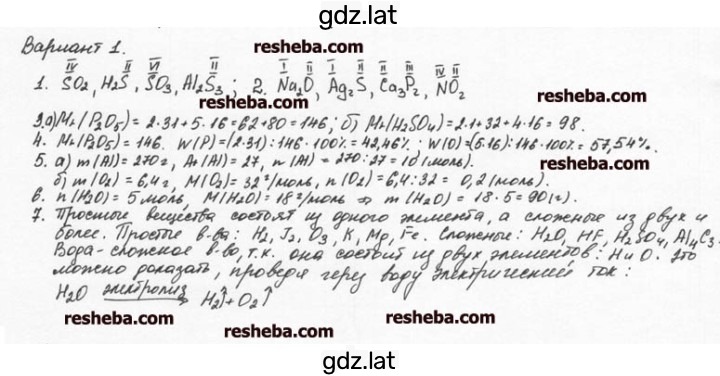 gdz.lat
Вариант 1.
resheba.com
resheba.com
IV II VI II I II I II II III IV II
1. SO2, H2S, SO3, Al2S3; 2. Na2O, Ag2S, Ca3P2, NO2
resheba.com
resheba.com
3.а) Mr(P2O5) = 2·31+5·16=62+80=146; б) Mr(H2SO4)=2·1+32+4·16=98.
4. Mr(P2O5)=146. W(P)=(2·31):146·100%=42,46%; W(O)=(5·16):146·100%=57,54%.
5. а) m(Al)=270г, Ar(Al)=27, n(Al)=270:27=10(моль).
resheba.com
б) m(O2)=6,4г, M(O2)=32 г/моль, n(O2)=6,4:32=0,2(моль).
6. n(H2O)=5моль, M(H2O)=18г/моль ⇒ m(H2O)=18·5=90(г).
7. Простые вещества состоят из одного элемента, а сложные из двух и
более. Простые в-ва: H2, J2, O3, K, Mg, Fe. Сложные: H2O, HF, H2SO4, Al4C3.
Вода-сложное в-во, т.к. она состоит из двух элементов: H и O. Это
можно доказать, проведя через воду электрический ток:
H2O электролиз → H2↑+O2↑
resheba.com
resheba.com
resheba.com
gdz.lat